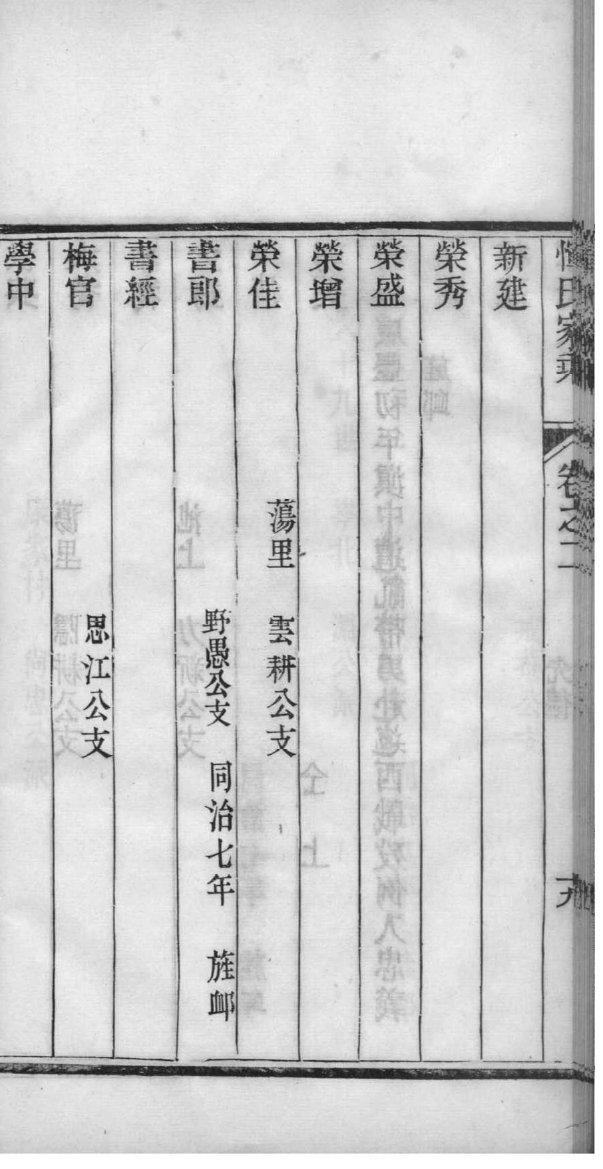 惲氏家乘 卷之二
新建
榮秀
榮盛
榮增
榮佳 蕩里 雲耕公支
書郎 野愚公支 同治七年 旌卹
書經
梅官 思江公支
學中